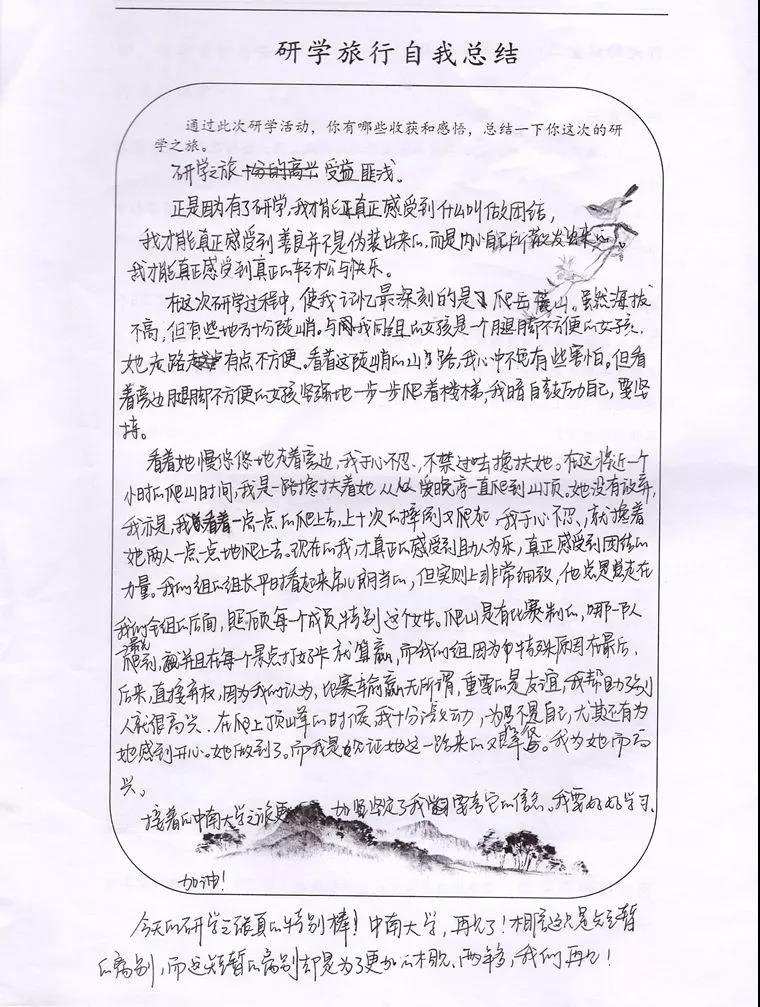 研学旅行自我总结
通过此次研学活动，你有哪些收获和感悟，总结一下你这次的研
学之旅。
研学之旅 十分的高兴 受益匪浅。
正是因为有了研学，我才能真正感受到什么叫做团结，
我才能真正感受到善良并不是伪装出来的，而是内心自己所散发出来的。
我才能真正感受到真正的轻松与快乐。
在这次研学过程中，使我记忆最深刻的是爬岳麓山。虽然海拔
不高，但有些地方十分陡峭。与我同组的女孩是一个腿脚不方便的女孩，
她走路有点不方便。看着这陡峭的山路，我心中不免有些害怕。但看
着旁边腿脚不方便的女孩坚强地一步一步爬着楼梯，我暗自鼓励自己，要坚
持。
看着她慢悠悠地走着旁边，我于心不忍，不禁过去搀扶她。在这将近一个
小时的爬山时间，我是一路搀扶着她从爱晚亭一直爬到山顶。她没有放弃，
我亦是，我看着一点一点的爬上去，上十次的摔倒又爬起，我于心不忍，就搀着
她两人一点一点地爬上去。现在的我，才真正的感受到助人为乐，真正感受到团结的
力量。我们组的组长平时看起来吊儿郎当的，但实则上非常细致，他总是走在
我们全组的后面，照顾每个成员特别这个女生。爬山是有比赛制的，哪一队
最先
爬到，并且在每个景点打好卡就算赢，而我们组因为特殊原因在最后，
后来，直接弃权，因为我们认为，比赛输赢无所谓，重要的是友谊，我帮助了别
人就很高兴。在爬上顶峰的时候，我十分激动，为不是自己，尤其还有为
她感到开心。她做到了。而我是见证她这一路来的艰辛。我为她而高
兴。
接着的中南大学之旅更 加坚定了我需考它的信念。我要好好学习，
加油！
今天的研学之旅真的特别棒！中南大学，再见了！相信这只是短暂
的离别，而这短暂的离别却是为了更加的相聚。两年后，我们再见！